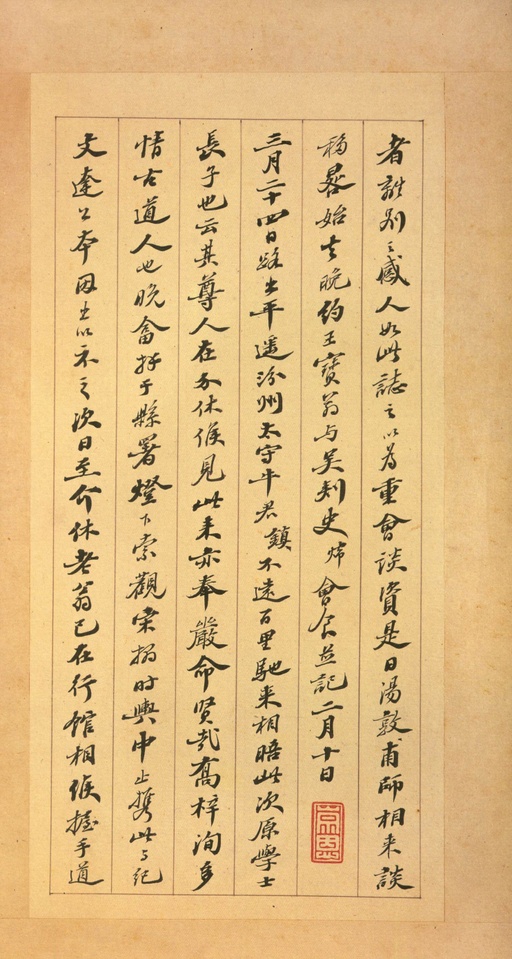 者離別之感人如此誌之以為重會談資是日湯敦甫師相来談
移晷始去晚約王寶翁与吴刺史煒會食並記二月十日
三月二十四日路出平遥汾州太守牛君鎮不遠百里馳来相晤此次原學士
長子也云其尊人在介休候見此来亦奉嚴命贤哉喬梓洵多
情古道人也晚畣拜于縣署燈下索觀宋搨时輿中止携此与紀
文達公本因出以示之次日至介休老翁已在行館相候握手道